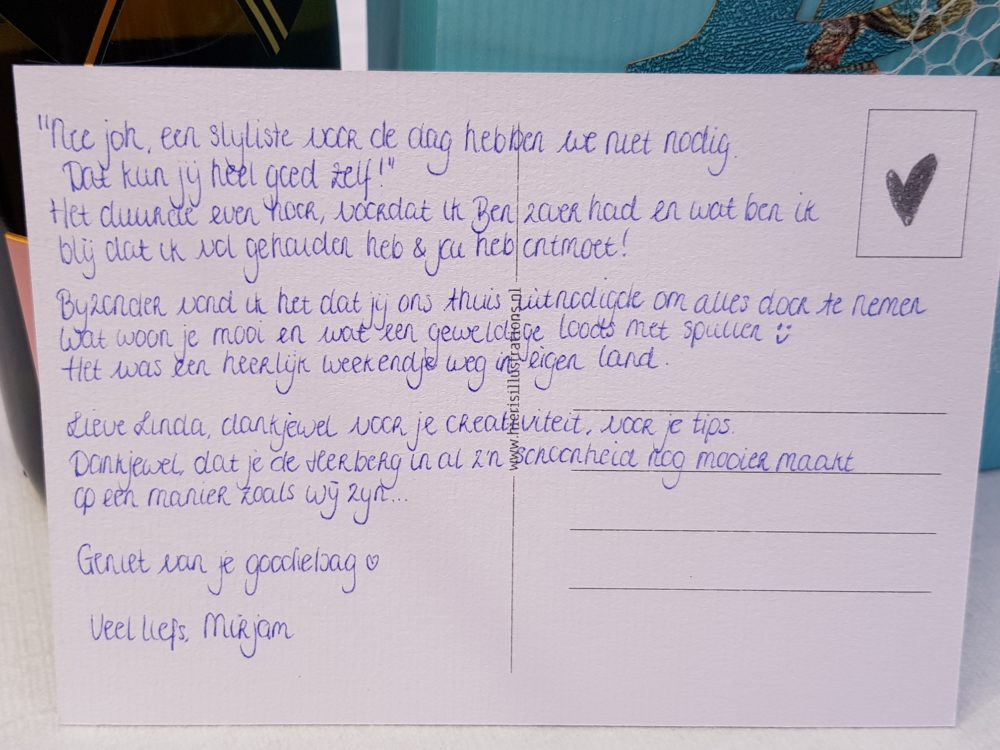 "Nee joh, een styliste voor de dag hebben we niet nodig.
Dat kun jij heel goed zelf!"
Het duurde even hoor, voordat ik Ben zover had en wat ben ik
blij dat ik vol gehouden heb & jou heb ontmoet!
Byzonder vond ik het dat jij ons thuis uitnodigde om alles door te nemen
Wat woon je mooi en wat een geweldige loods met spullen ☺
Het was een heerlijk weekendje weg in eigen land.
Lieve Linda, dankjewel voor je creativiteit, voor je tips.
Dankjewel, dat je de Veerberg in al z'n schoonheid nog mooier maakt
op een manier zoals wij zyn...
Geniet van je goodiebag ♡
Veel liefs, Mirjam
www.hierisillustrations.nl